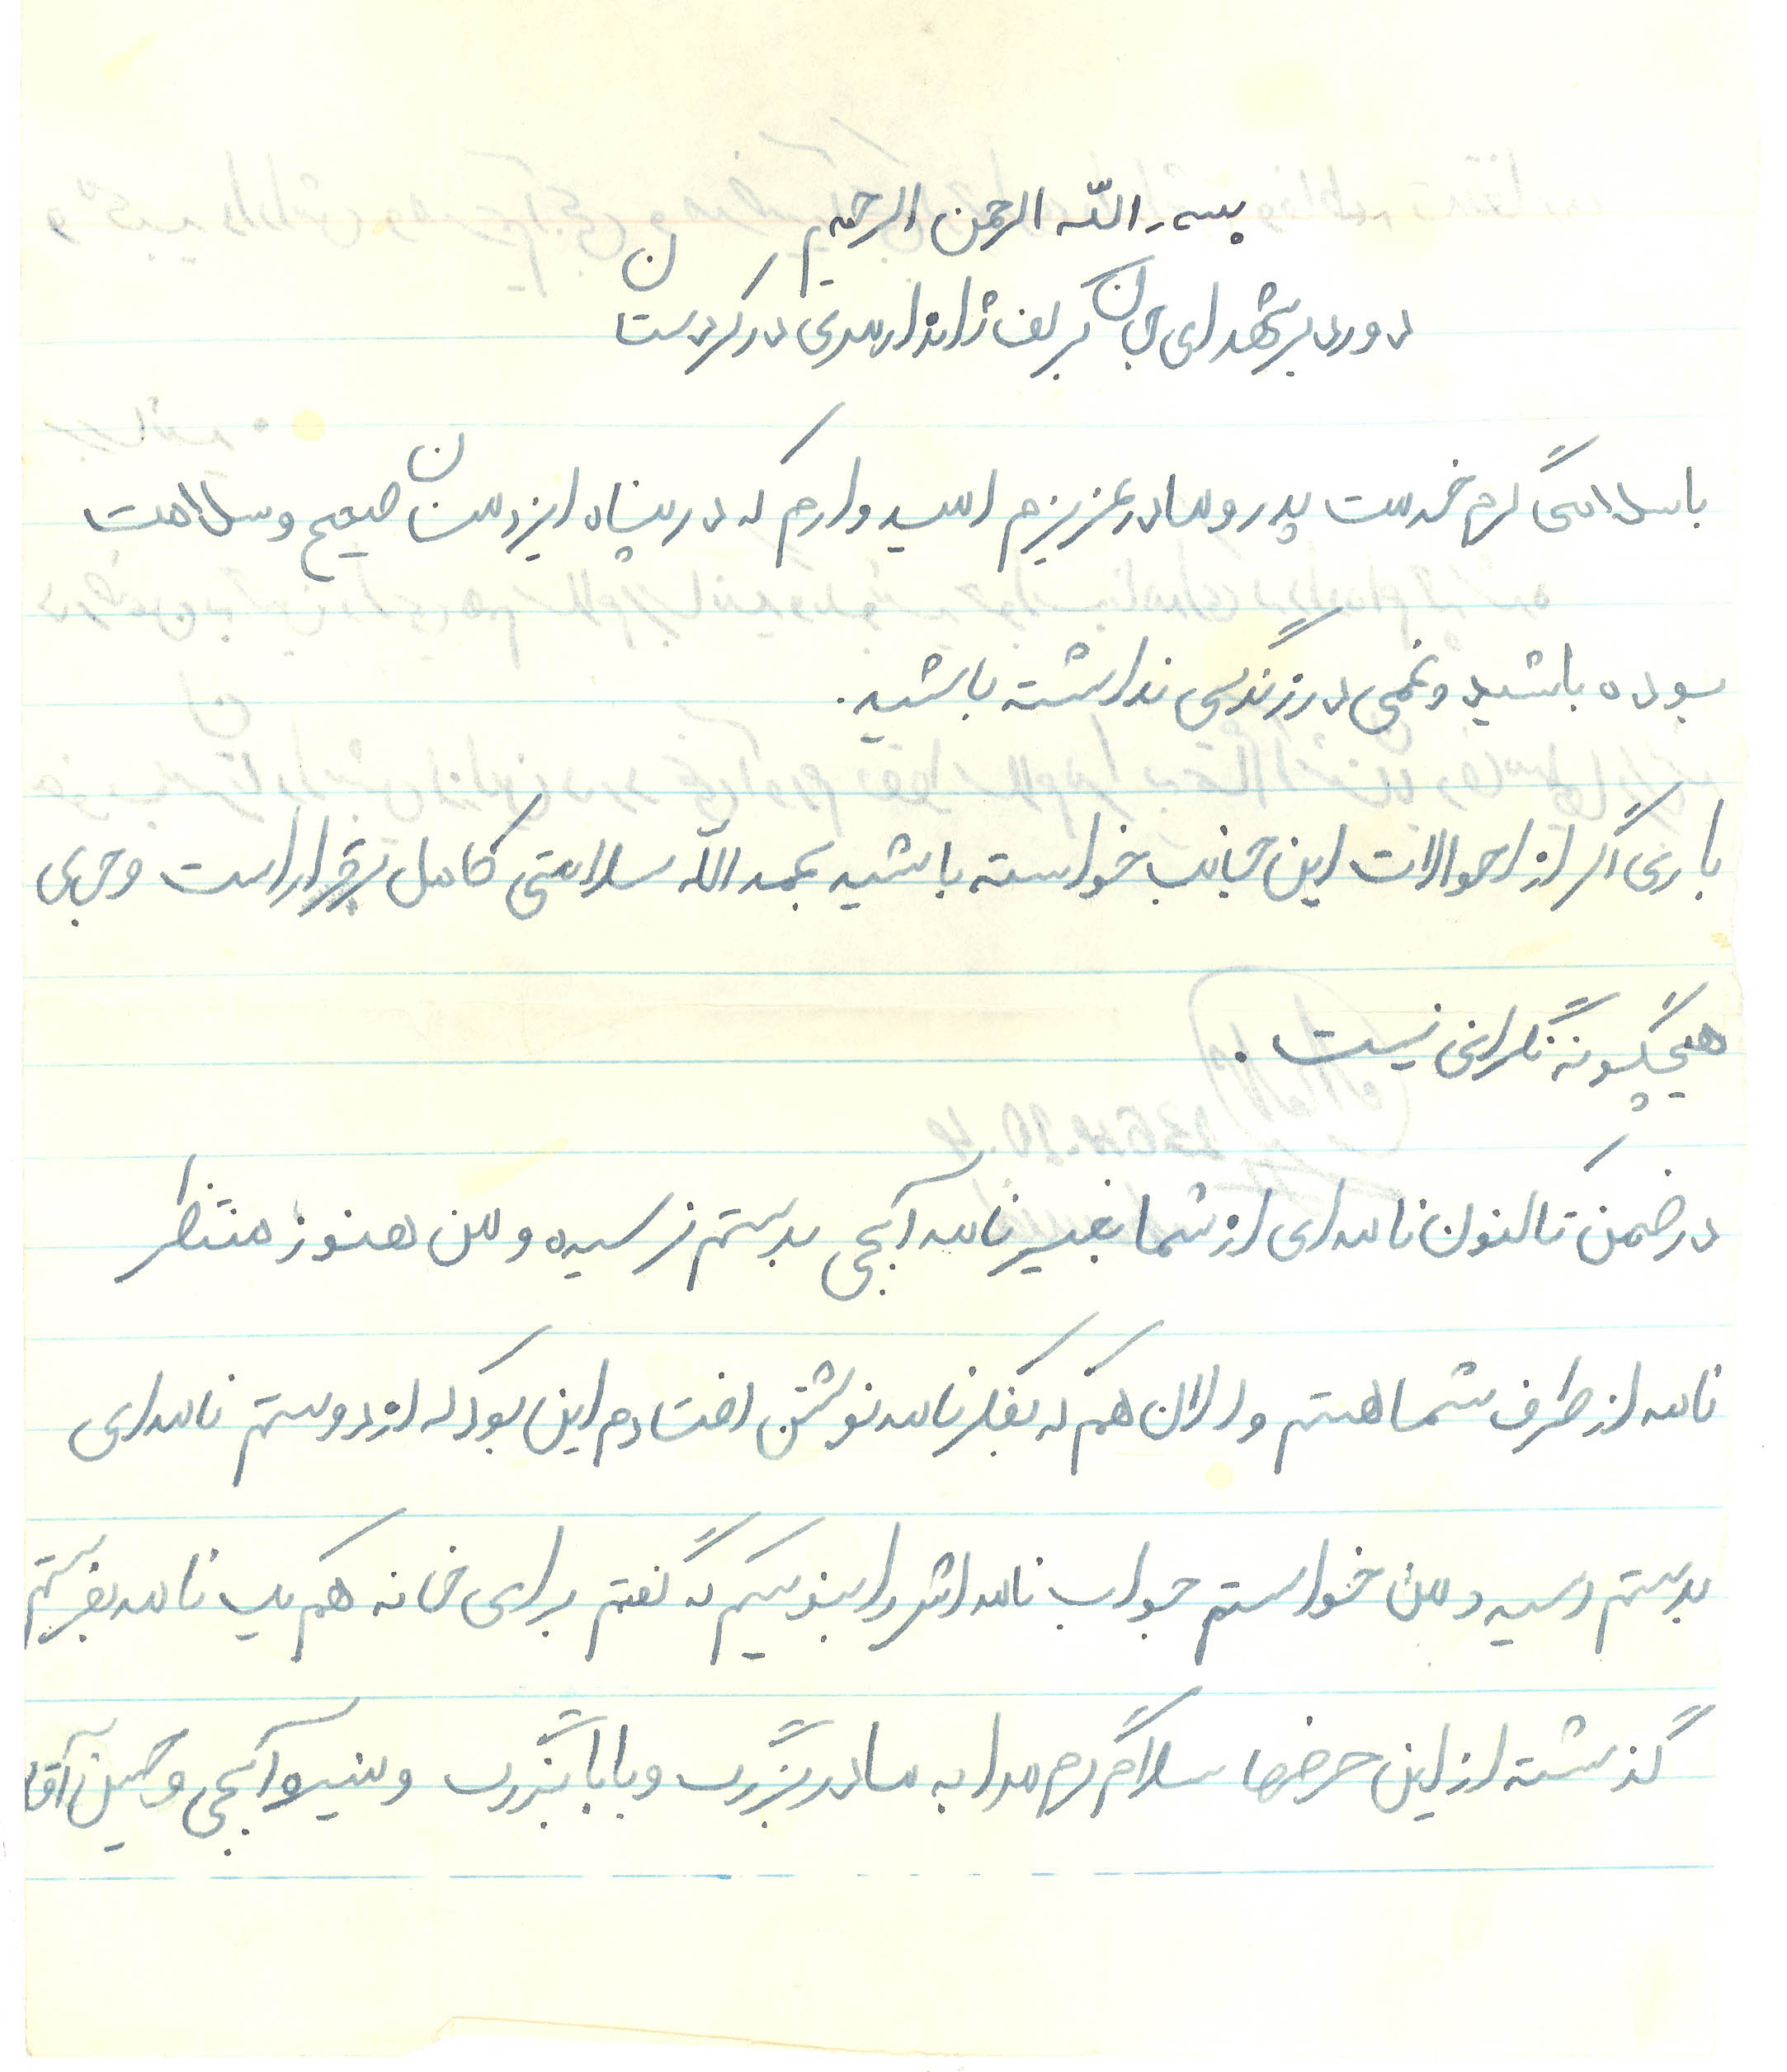 بسم الله الرحمن الرحیم
درود بر شهدای جان برکف ژاندارمری در کردستان
با سلامی گرم خدمت پدر و مادر عزیزم امیدوارم که در پناه ایزد منان صحیح و سلامت
بوده باشید و غمی در زندگی نداشته باشید.
باری اگر از احوالات این جانب خواسته باشید بحمدالله سلامتی کامل برقرار است و جای
هیچگونه نگرانی نیست.
در ضمن تا کنون نامه ای از شما بغیر نامه آبجی بدستم نرسیده و من هنوز منتظر
نامه از طرف شما هستم و الان هم که بفکر نامه نوشتن افتادم این بود که از دوستم نامه ای
بدستم رسید و من خواستم جواب نامه اش را بنویسم که گفتم برای خانه هم یک نامه بفرستم
گذشته از این حرفها سلام گرم مرا به مادربزرگ و بابابزرگ و منیره آبجی و حسین آقا